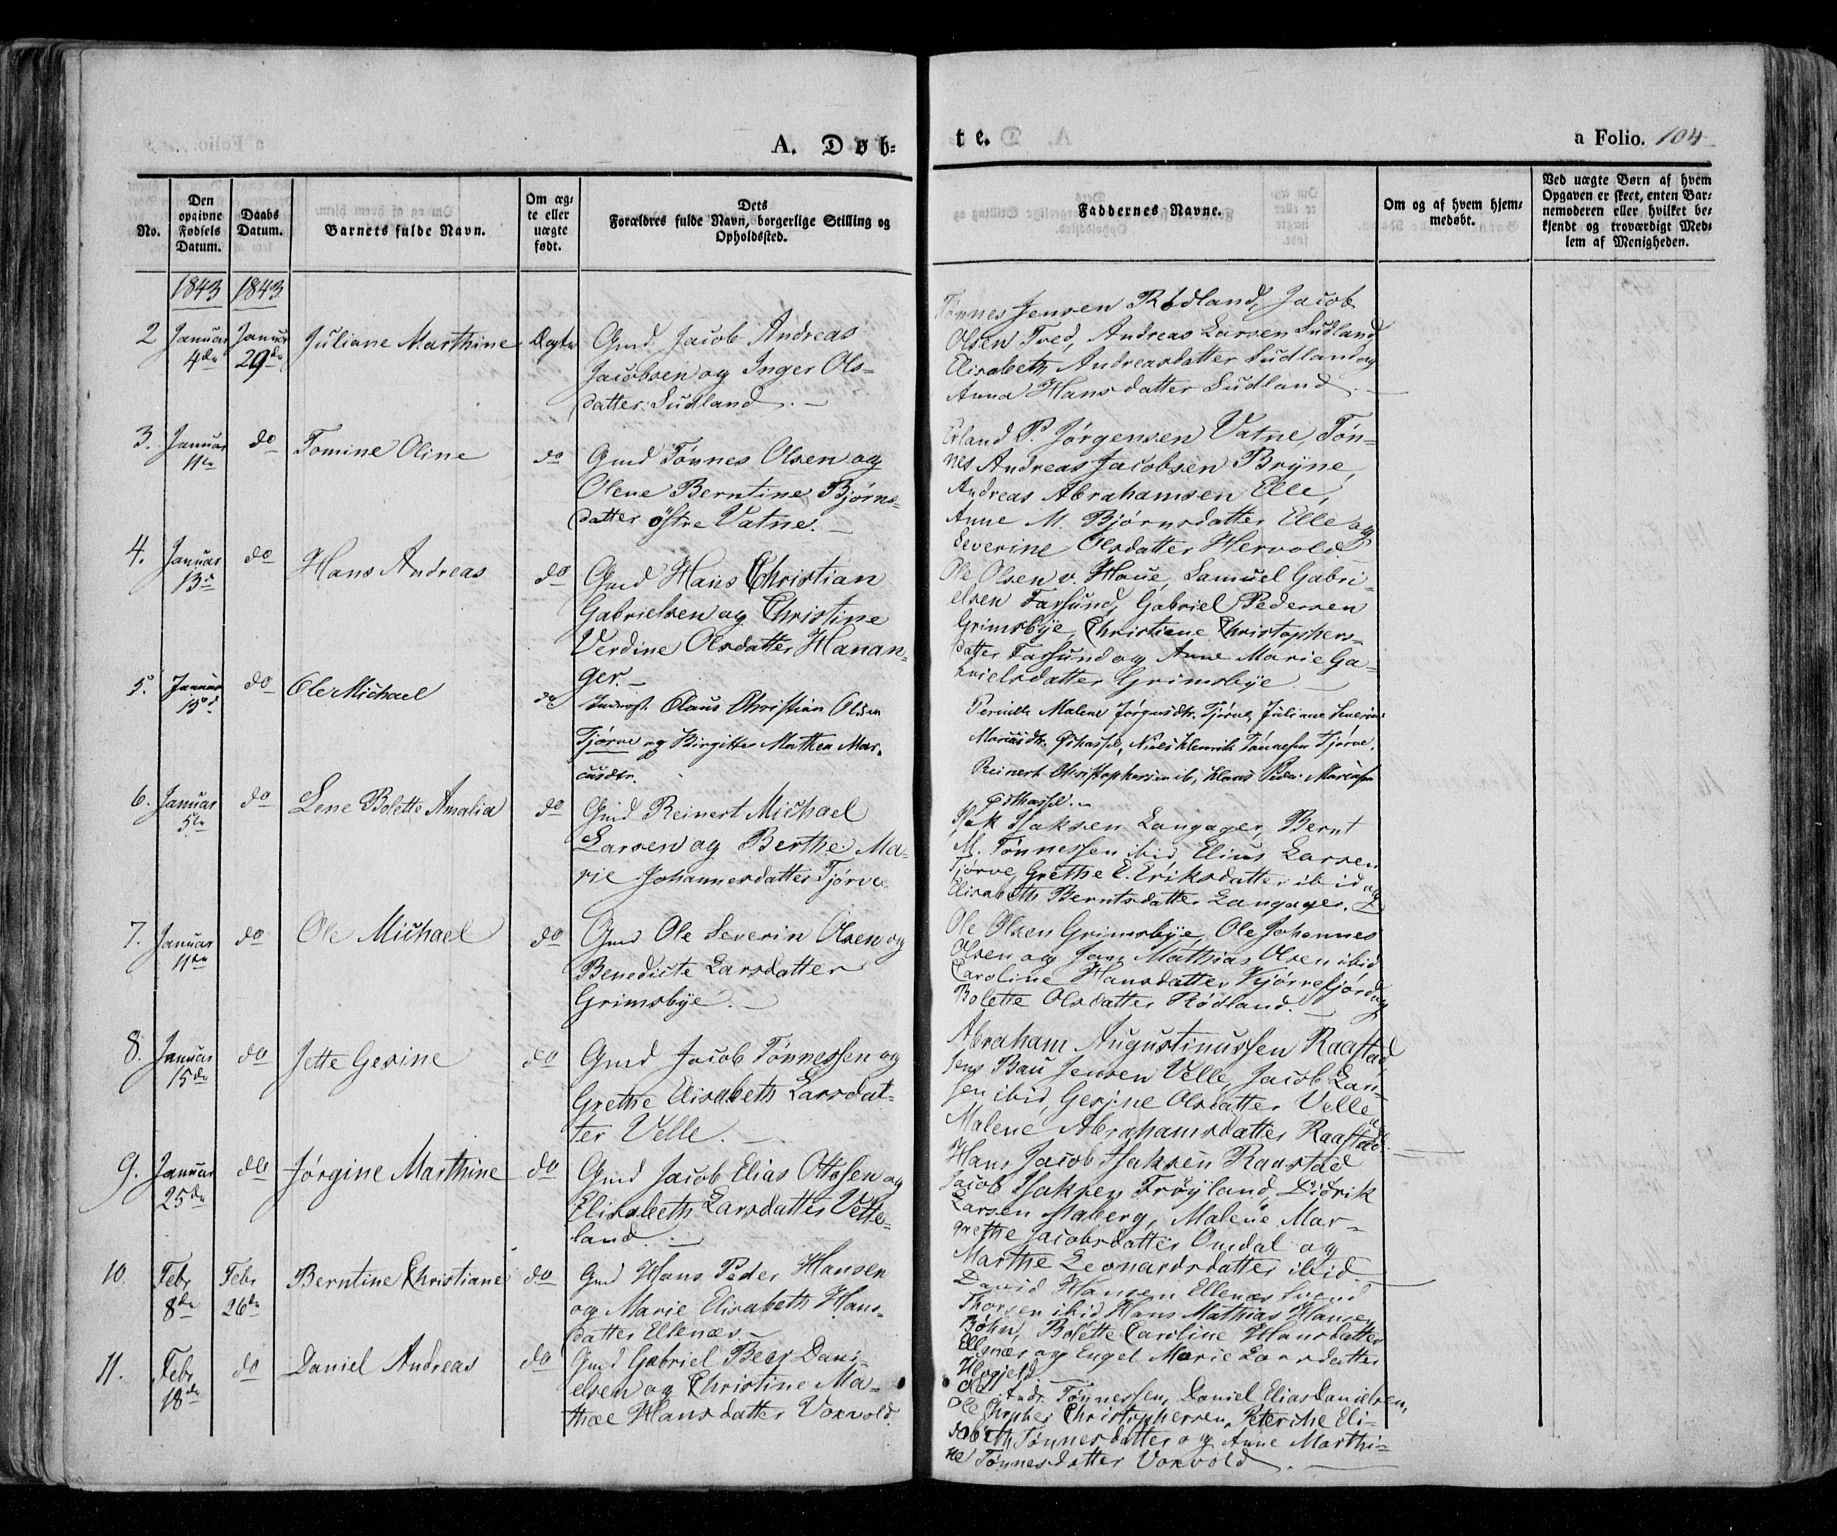 A. Døb-
te.
a Folio. 104
No.
Den opgivne Fødsels Datum.
Daabs Datum.
Barnets fulde Navn.
Om æg-
te eller
uægte
født.
Dets
Forældres fulde Navn, borgerlige Stilling og
Opholdssted.
Faddernes Navne.
Om og af hvem hjem-
medøbt.
Ved uægte Børn af hvem
Opgaven er skeet, enten Bar-
nemoderen eller hvilket be-
kjendt og troværdigt Med-
lem af Menigheden.
1843 1843
2 Januar 4de
Januar 29de
Juliane Marthine
Ægte
Gmd Jacob Andreas
Jacobsen og Inger Ols-
datter Sudland. —
Tønnes Jensen Rødland, Jacob
Olsen Tved, Andreas Larsen Sudland
Elisabeth Andreasdatter Sudland og
Anna Hansdatter Sudland
3. Januar 11te
do
Tomine Oline
do
Gmd Tønnes Olsen og
Olene Berntine Bjørns-
datter østre Vatne. —
Erland P. Jørgensen Vatne, Tøn-
nes Andreas Jacobsen Bryne,
Andreas Abrahamsen Elle,
Anne M. Bjørnsdatter Elle og
Severine Olsdatter Hervold
4. Januar 13de
do
Hans Andreas
do
Gmd Hans Christian
Gabrielsen og Christine
Verdine Olsdatter Hanan-
ger. —
Ole Olsen v. Houe, Samuel Gabri-
elsen Farsund, Gabriel Pedersen
Grimsbye, Christiene Christophers-
datter Farsund og Anne Marie Ga-
brielsdatter Grimsbye —
5. Januar 15de
do
Ole Michael
do
Inderst Claus Christian Olsen
Tjørve og Birgitte Mathea Mar-
cusdtr.
Pernille Malene Jørgensdtr. Tjørve, Juliane Severine
Mariusdtr. Østhassel, Niels Henrik Tønnesen Tjørve,
Reinert Christophersen ib, Hans Peder Mariussen
Østhassel. —
6. Januar 5te
do
Lene Bolette Amalia
do
Gmd Reinert Michael
Larsen og Berthe Ma-
rie Johannesdatter Tjørve
Isak Isaksen Langager, Bernt
M. Tønnessen ibid, Elius Larsen
Tjørve, Grethe E. Eriksdatter ibid og
Elisabeth Berntsdatter Langager.
7. Januar 11te
do
Ole Michael
do
Gmd Ole Severin Olsen og
Benedicte Larsdatter
Grimsbye. —
Ole Olsen Grimsbye, Ole Johannes
Olsen og Jan Mathias Olsen ibid
Caroline Hansdatter Kjørrefjord og
Bolette Olsdatter Rødland. —
8. Januar 15de
do
Jette Gesine
do
Gmd Jacob Tønnessen og
Grethe Elisabeth Larsdat-
ter Velle. —
Abraham Augustinussen Raastad
Jens Bau Jensen Velle, Jacob Lar-
sen ibid, Gesine Olsdatter Velle
Malene Abrahamsdatter Raastad.
9. Januar 25de
do
Jørgine Marthine
do
Gmd Jacob Elias Ottosen og
Elisabeth Larsdatter Vette-
land. —
Hans Jacob Isaksen Raastad
Jacob Isaksen Frøyland, Didrik
Larsen Staberg, Malene Mar-
grethe Jacobsdatter Omdal og
Marthe Leonardsdatter ibid.
10. Febr 8de
Febr 26de
Berntine Christiane
do
Gmd Hans Peder Hansen
og Marie Elisabeth Hans-
datter Ellenæs —
David Hansen Ellenæs Svend
Thorsen ibid Hans Mathias Hansen
Bøhn, Bolette Caroline Hansdatter
Ellenæs og Engel Marie Larsdatter
11. Febr 18de
do
Daniel Andreas
do
Gmd Gabriel Beer Dani-
elsen og Christine Ma-
thea Hansdatter Voxvold.
Andr. Tønnessen, Daniel Elias Danielsen,
Christophersen, Peterike Eli-
sabeth Tønnesdatter og Anne Marthi-
ne Tønnesdatter Voxvold. —